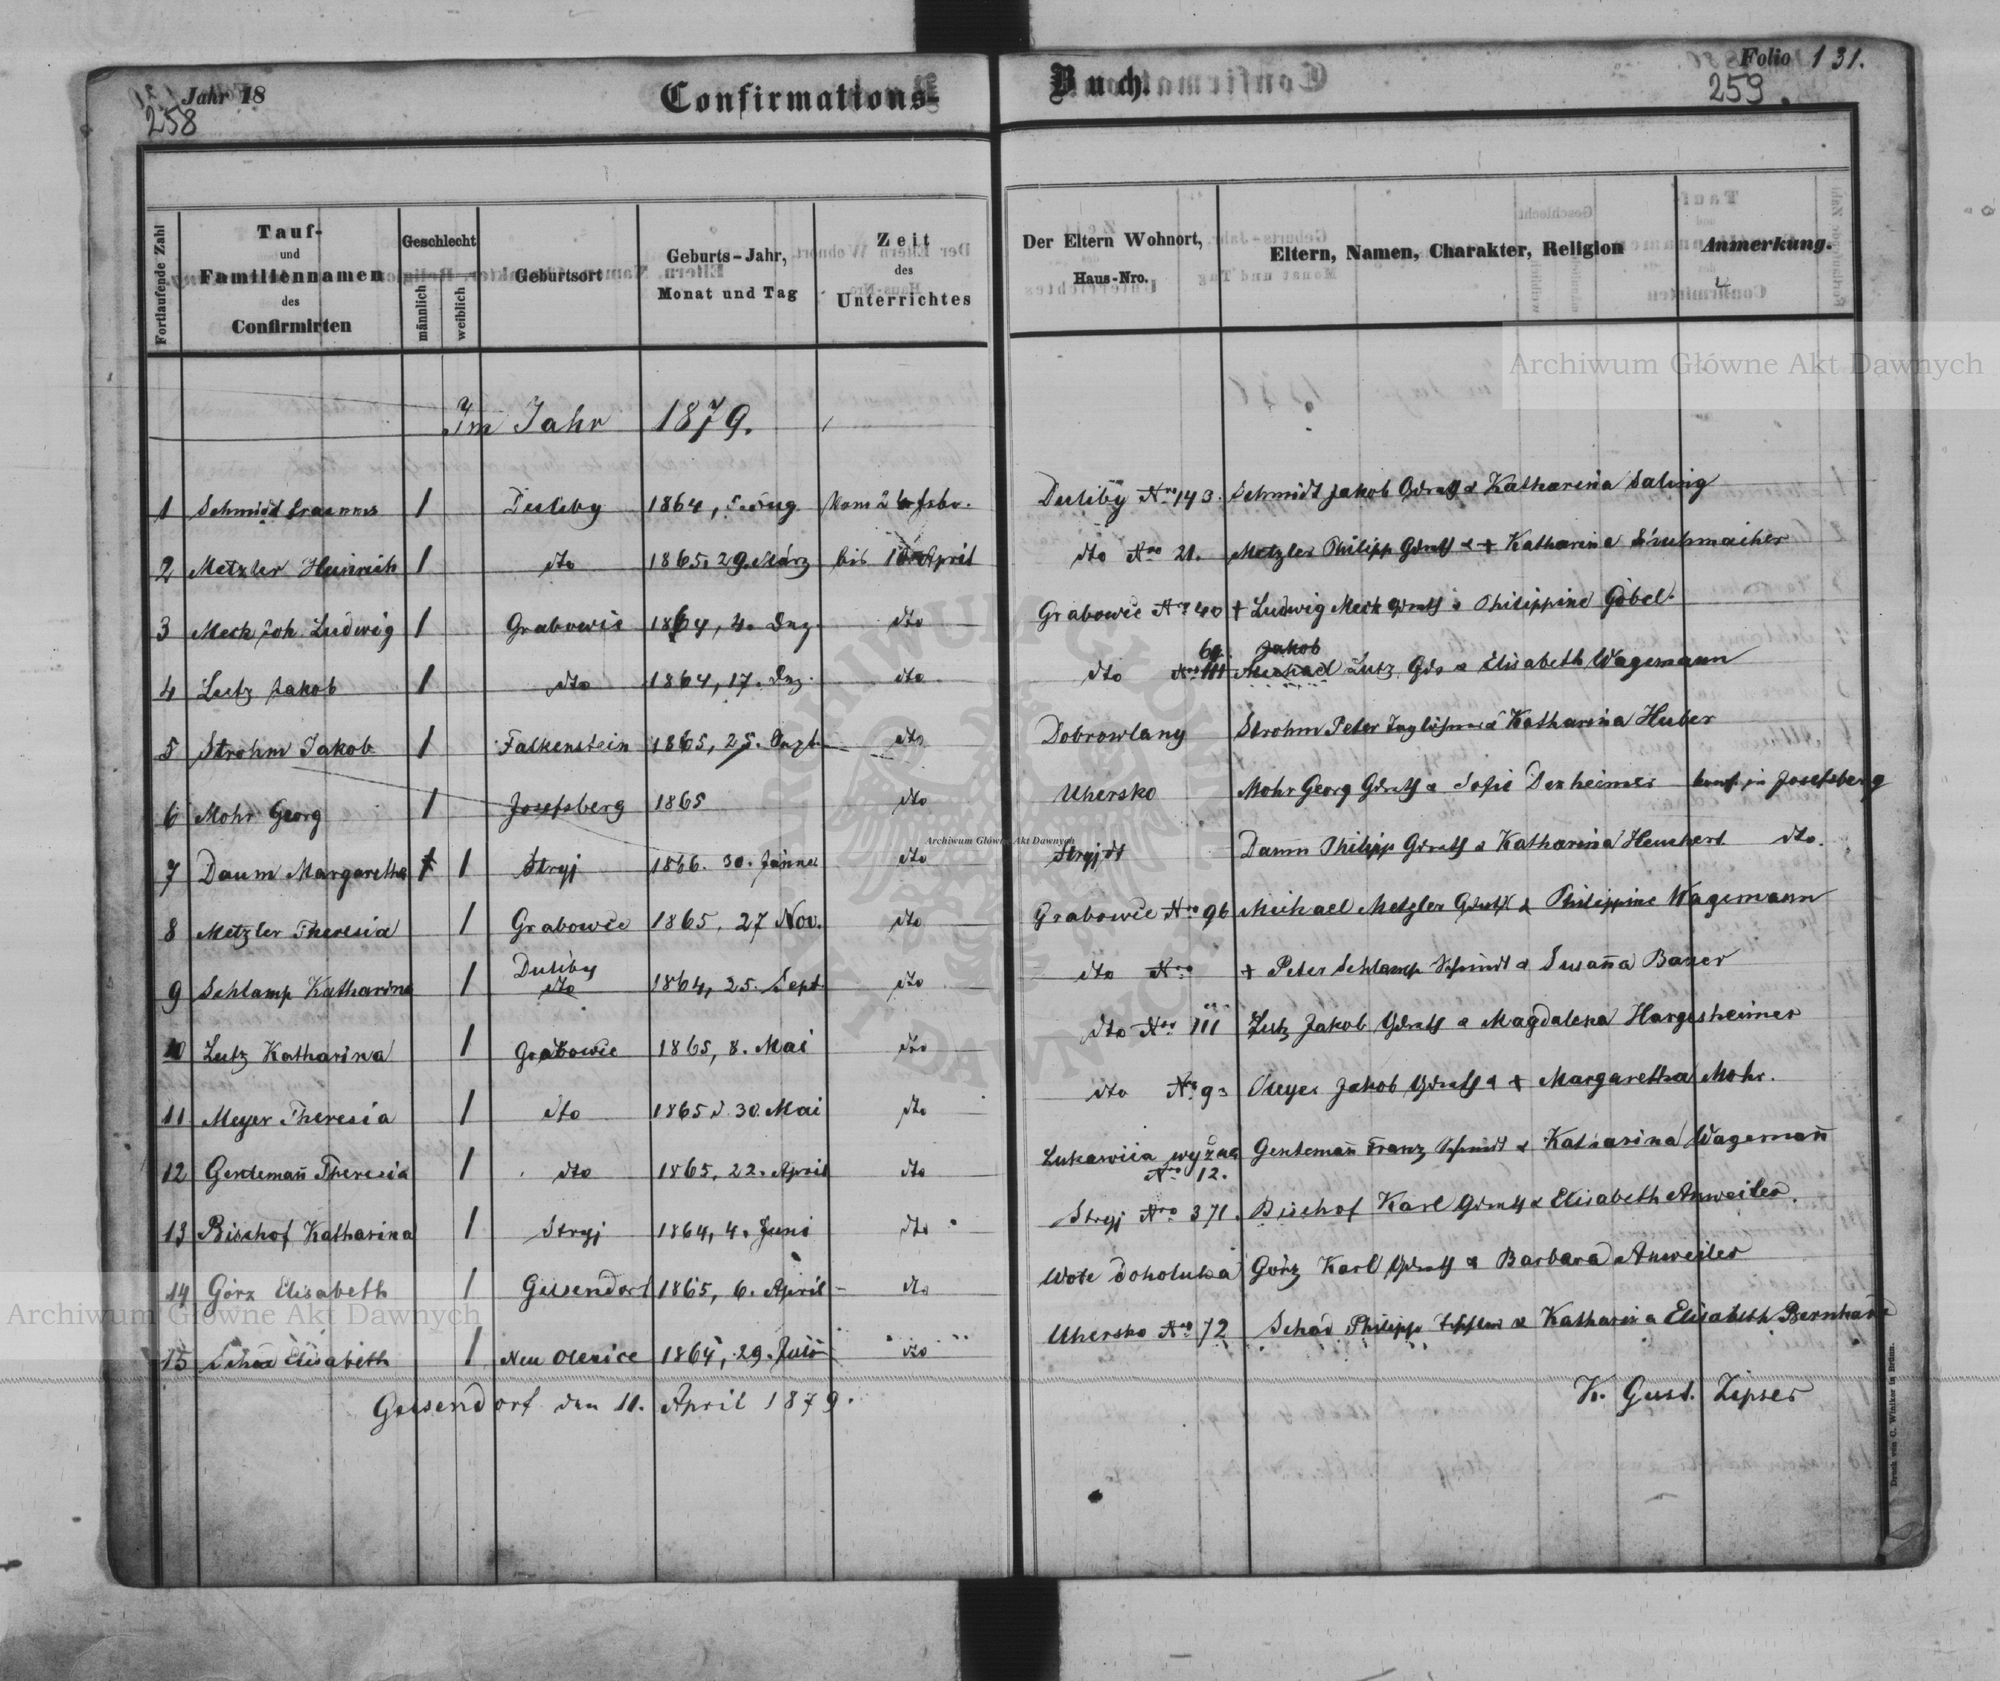 Jahr 18
258
Confirmations-
Buch.
Folio 131.
259.
Fortlaufende Zahl
Tauf-
und
Familiennamen
des
Confirmirten
Geschlecht
männlich
weiblich
Geburtsort
Geburts-Jahr,
Monat und Tag
Zeit
des
Unterrichtes
Der Eltern Wohnort,
Haus-Nro.
Eltern, Namen, Charakter, Religion
Anmerkung.
Im Jahr 1879.
1 Schmidt Erasmus 1 Duliby 1864, 5. Aug. Vom 2 Duliby Nro 143. Schmidt Jakob & Katharina Saling
2 Metzler Heinrich 1 dto 1865. 29. März bis 10 April dto Nro 21. Metzler Philipp & + Katharina
3 Meck Joh. Ludwig 1 Grabowie 1864, 4. Dez. dto Grabowce Nro 40 + Ludwig Meck & Philippine Göbel.
4 Lutz Jakob 1 dto 1864, 17. Dez. dto dto Nro 111 69. Michael Jakob Lutz & Elisabeth Wagemann
5 Strohm Jakob 1 Falkenstein 1865, 25. dto Dobrowlany Strohm Peter & Katharina Huber
6 Mohr Georg 1 Josefsberg 1865 dto Uhersko Mohr Georg & Sofie Dexheimer konf. in Josefsberg
7 Daum Margaretha 1 Stryj 1866. 30. Jänner dto Stryj Daum Philipp & Katharina Heuchert dto.
8 Metzler Theresia 1 Grabowce 1865, 27 Nov. dto Grabowce Nro 96 Michael Metzler & Philippine Wagemann
9 Schlamp Katharina 1 dto Duliby 1864, 25. Sept. dto dto Nro + Peter Schlamp & Susanna Bauer
10 Lutz Katharina 1 Grabowce 1865, 8. Mai dto dto Nro 111 Lutz Jakob & Magdalena Hargesheimer
11 Meyer Theresia 1 dto 1865 d. 30. Mai dto dto Nro Meyer Jakob & + Margaretha Mohr.
12 Gentemañ Theresia 1 dto 1865, 22. April dto Lukawica wyżna Nro 12. Gentemañ Franz & Katharina Wagemañ
13 Bischof Katharina 1 Stryj 1864, 4. Juni dto Stryj Nro 371. Bischof Karl & Elisabeth Anweiler.
14 Görz Elisabeth 1 Geisendorf 1865, 6. April dto Wola Dohołuka Görz Karl & Barbara Anweiler
15 Schad Elisabeth 1 Neu Olexice 1864, 29. Juli dto Uhersko Nro 72 Schad Philipp & Katharina Elisabeth Bernhard
Geisendorf den 11. April 1879.
K. Gust. Zipser
Druck von C. Winiker in Brünn.
Archiwum Główne Akt Dawnych
Archiwum Główne Akt Dawnych
Archiwum Główne Akt Dawnych
ARCHIWUM GŁÓWNE AKT DAWNYCH